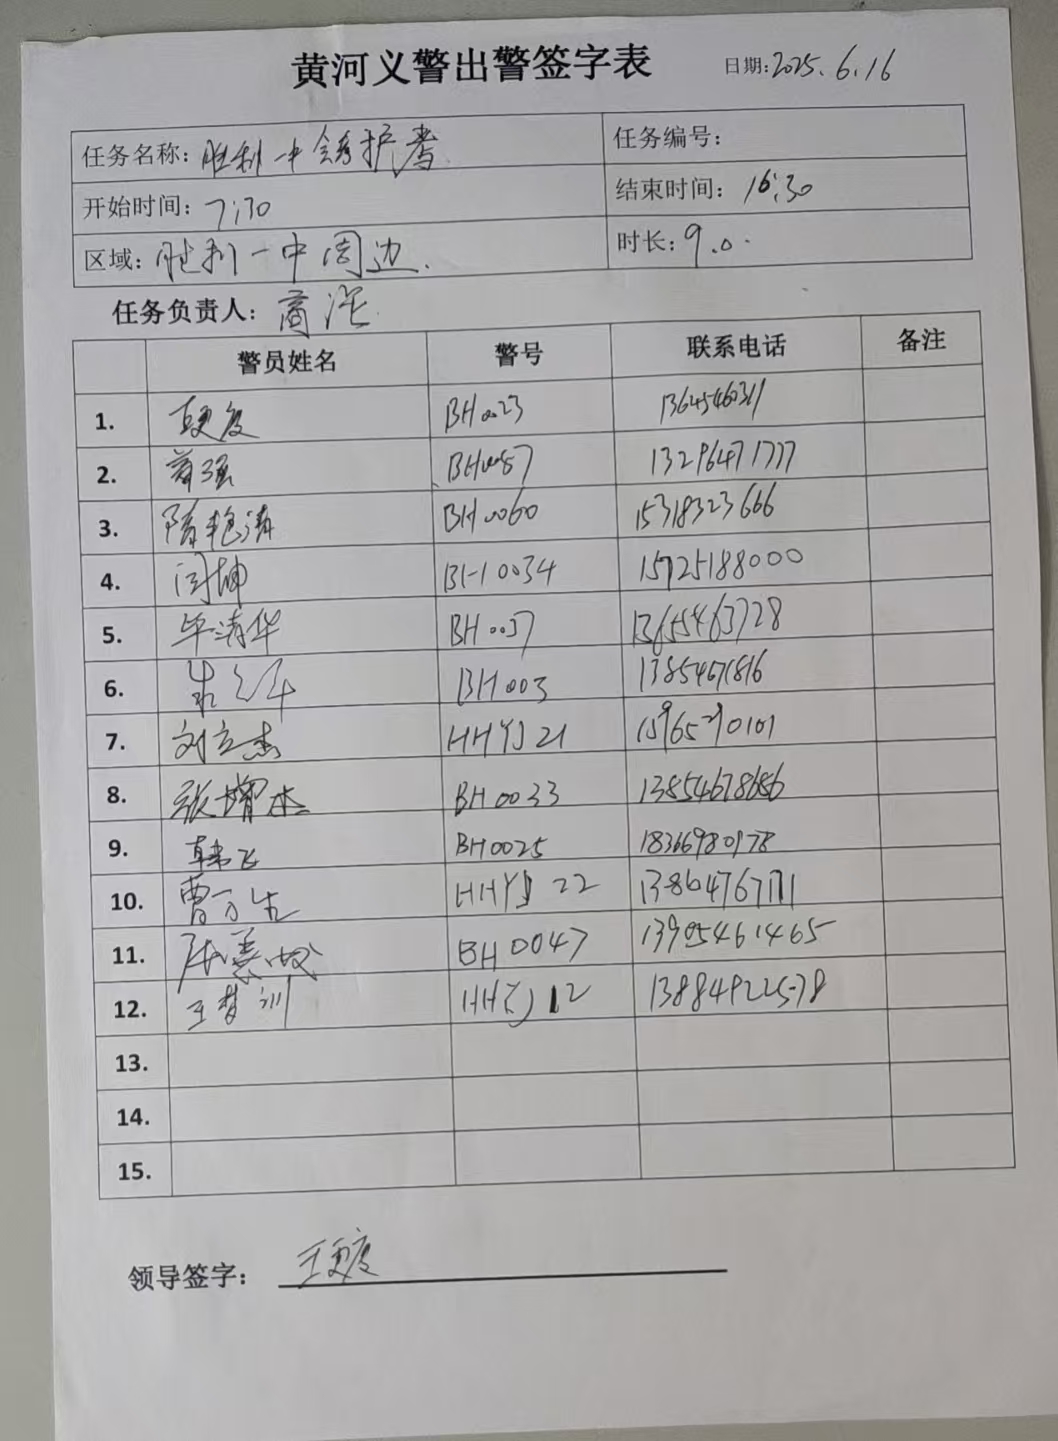 黄河义警出警签字表 日期:2025.6.16
任务名称: 胜利一中 护考 任务编号:
开始时间: 7:30 结束时间: 16:30
区域: 胜利一中周边. 时长: 9.0.
任务负责人: 商
警员姓名 警号 联系电话 备注
1. BH0023 13645460311
2. 强 13296471777
3. 隋艳涛 BH0060 15318323666
4. 闫坤 BH0034 15725188000
5. 毕清华 BH0037 13655463728
6. BH003 13854671816
7. 刘立杰 HHYJ21 15965290101
8. 张增杰 BH0033 13854678686
9. 韩飞 BH0025 18366980178
10. 曹万生 HHYJ 22
11. BH0047 13905461465
12. 王梦训 HHYJ12 13884922578
13.
14.
15.
领导签字: 王更度